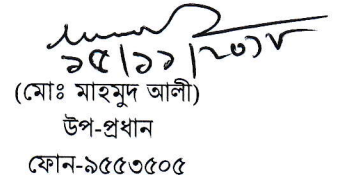 ১৫/১১/২০১৮
(মোঃ মাহমুদ আলী)
উপ-প্রধান
ফোন-৯৫৫৩৫০৫